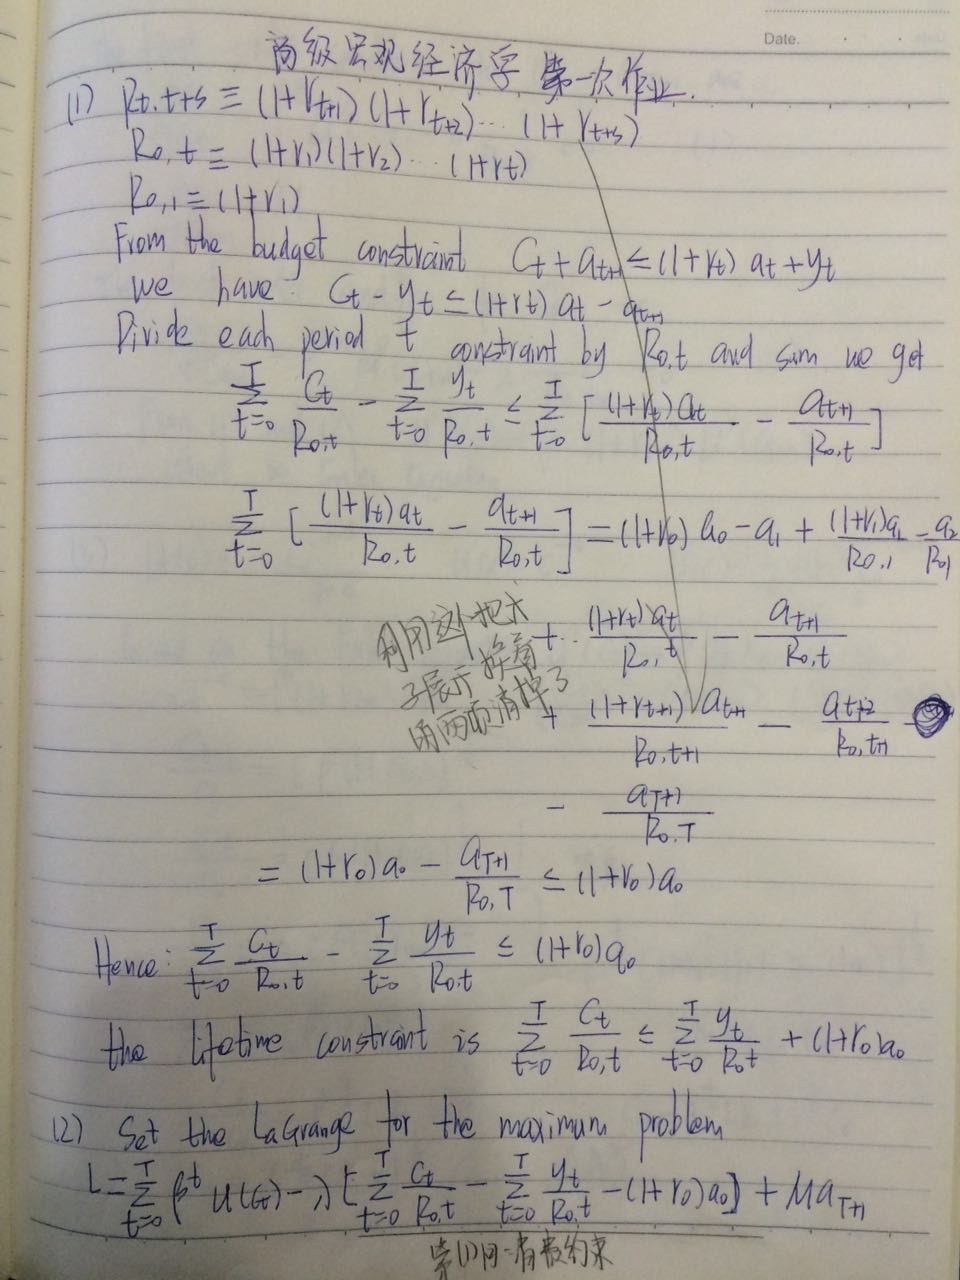 Date.
高级宏观经济学 第一次作业.
(1) Rt.t+s ≡ (1+rt+1)(1+rt+2)··· (1+rt+s)
R0,t ≡ (1+r1)(1+r2)··· (1+rt)
R0,1 ≡ (1+r1)
From the budget constraint Ct + at+1 ≤ (1+rt) at + yt
we have: Ct - yt ≤ (1+rt) at - at+1
Divide each period t constraint by R0,t and sum we get
∑_{t=0}^{T} Ct/R0,t - ∑_{t=0}^{T} yt/R0,t ≤ ∑_{t=0}^{T} [ (1+rt)at/R0,t - at+1/R0,t ]
∑_{t=0}^{T} [ (1+rt)at/R0,t - at+1/R0,t ] = (1+r0) a0 - a1 + (1+r1)a1/R0,1 - a2/R0,1
+·· (1+rt)at/R0,t - at+1/R0,t
利用这个把大
子展示 接着
两项消掉了
+ (1+rt+1) at+1/R0,t+1 - at+2/R0,t+1
- aT+1/R0,T
= (1+r0)a0 - aT+1/R0,T ≤ (1+r0)a0
Hence: ∑_{t=0}^{T} Ct/R0,t - ∑_{t=0}^{T} yt/R0,t ≤ (1+r0)a0
the lifetime constraint is ∑_{t=0}^{T} Ct/R0,t ≤ ∑_{t=0}^{T} yt/R0,t + (1+r0)a0
(2) Set the LaGrange for the maximum problem
L = ∑_{t=0}^{T} β^t u(Ct) - λ[ ∑_{t=0}^{T} Ct/R0,t - ∑_{t=0}^{T} yt/R0,t - (1+r0)a0 ] + μaT+1
第(1)问一有
约束